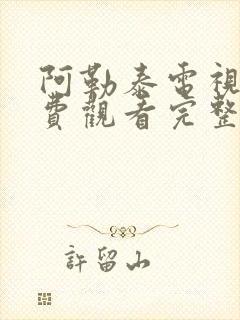 阿勒泰電視
費觀看完整
許留山